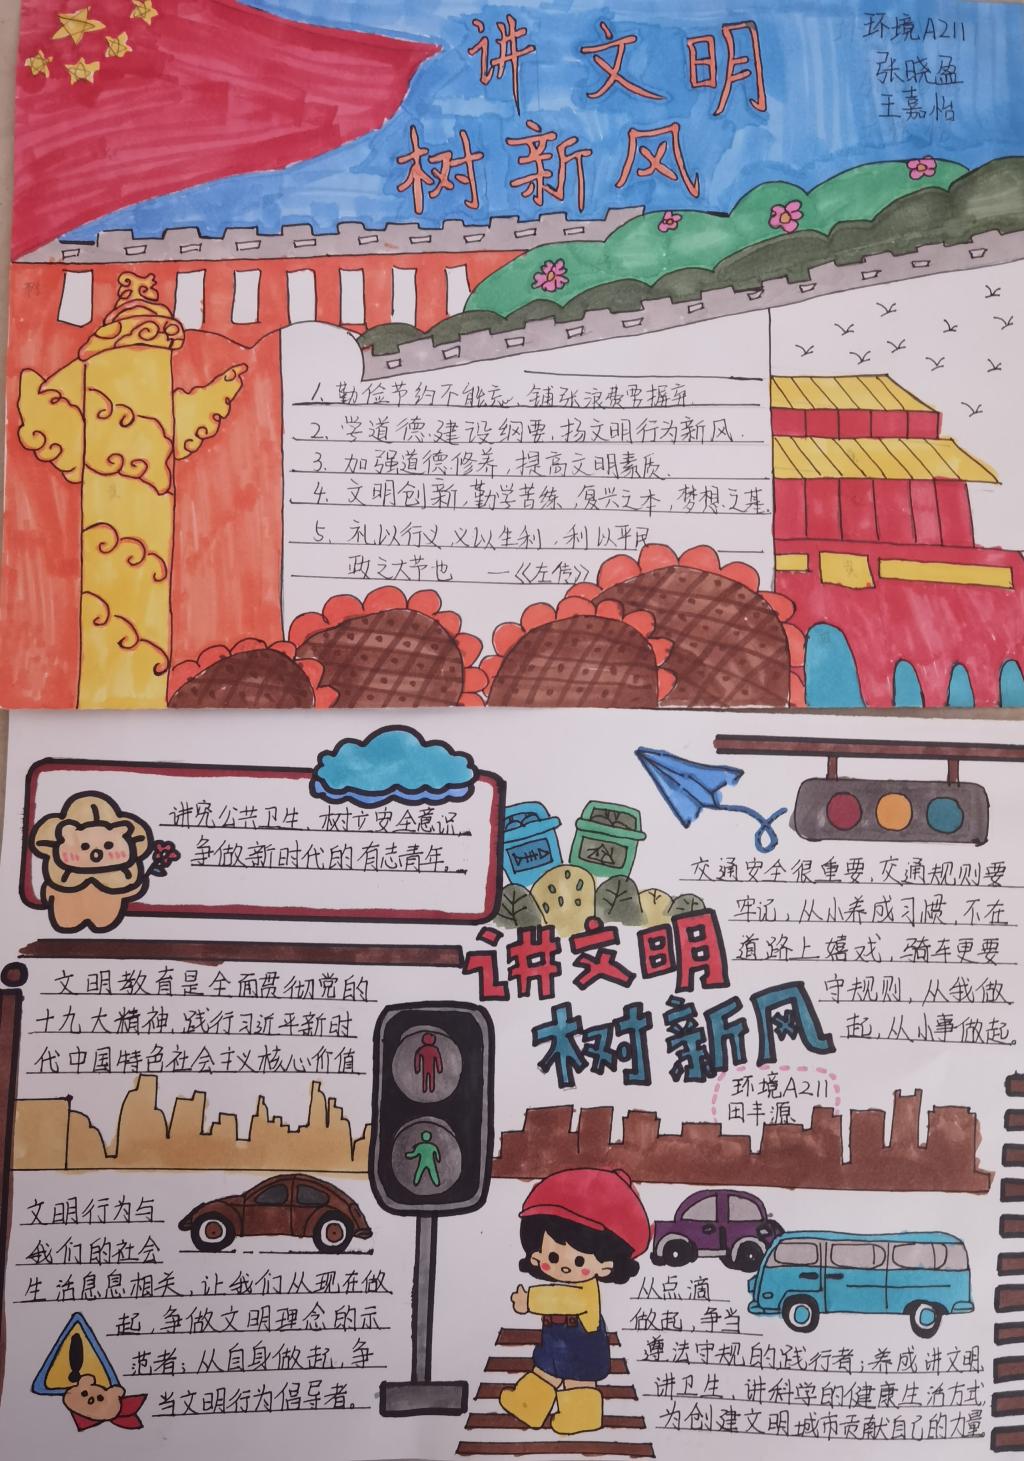 讲文明
树新风
环境A211
张晓盈
王嘉怡
1. 勤俭节约不能忘,铺张浪费要摒弃.
2. 学道德建设纲要,扬文明行为新风.
3. 加强道德修养,提高文明素质.
4. 文明创新,勤学苦练,复兴之本,梦想之基.
5. 礼以行义,义以生利,利以平民
政之大节也 —《左传》
讲究公共卫生、树立安全意识,
争做新时代的有志青年。
交通安全很重要,交通规则要
牢记,从小养成习惯,不在
道路上嬉戏,骑车更要
守规则,从我做
起,从小事做起。
讲文明
树新风
环境A211
田丰源
文明教育是全面贯彻党的
十九大精神,践行习近平新时
代中国特色社会主义核心价值
文明行为与
我们的社会
生活息息相关,让我们从现在做
起,争做文明理念的示
范者;从自身做起,争
当文明行为倡导者。
从点滴
做起,争当
遵法守规的践行者;养成讲文明
讲卫生、讲科学的健康生活方式
为创建文明城市贡献自己的力量